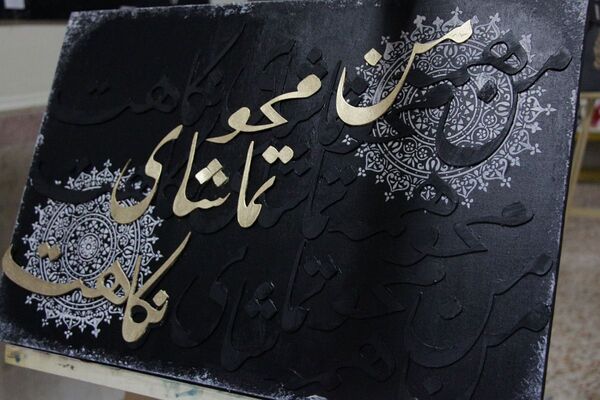 من
محو
تماشای
نگاهت